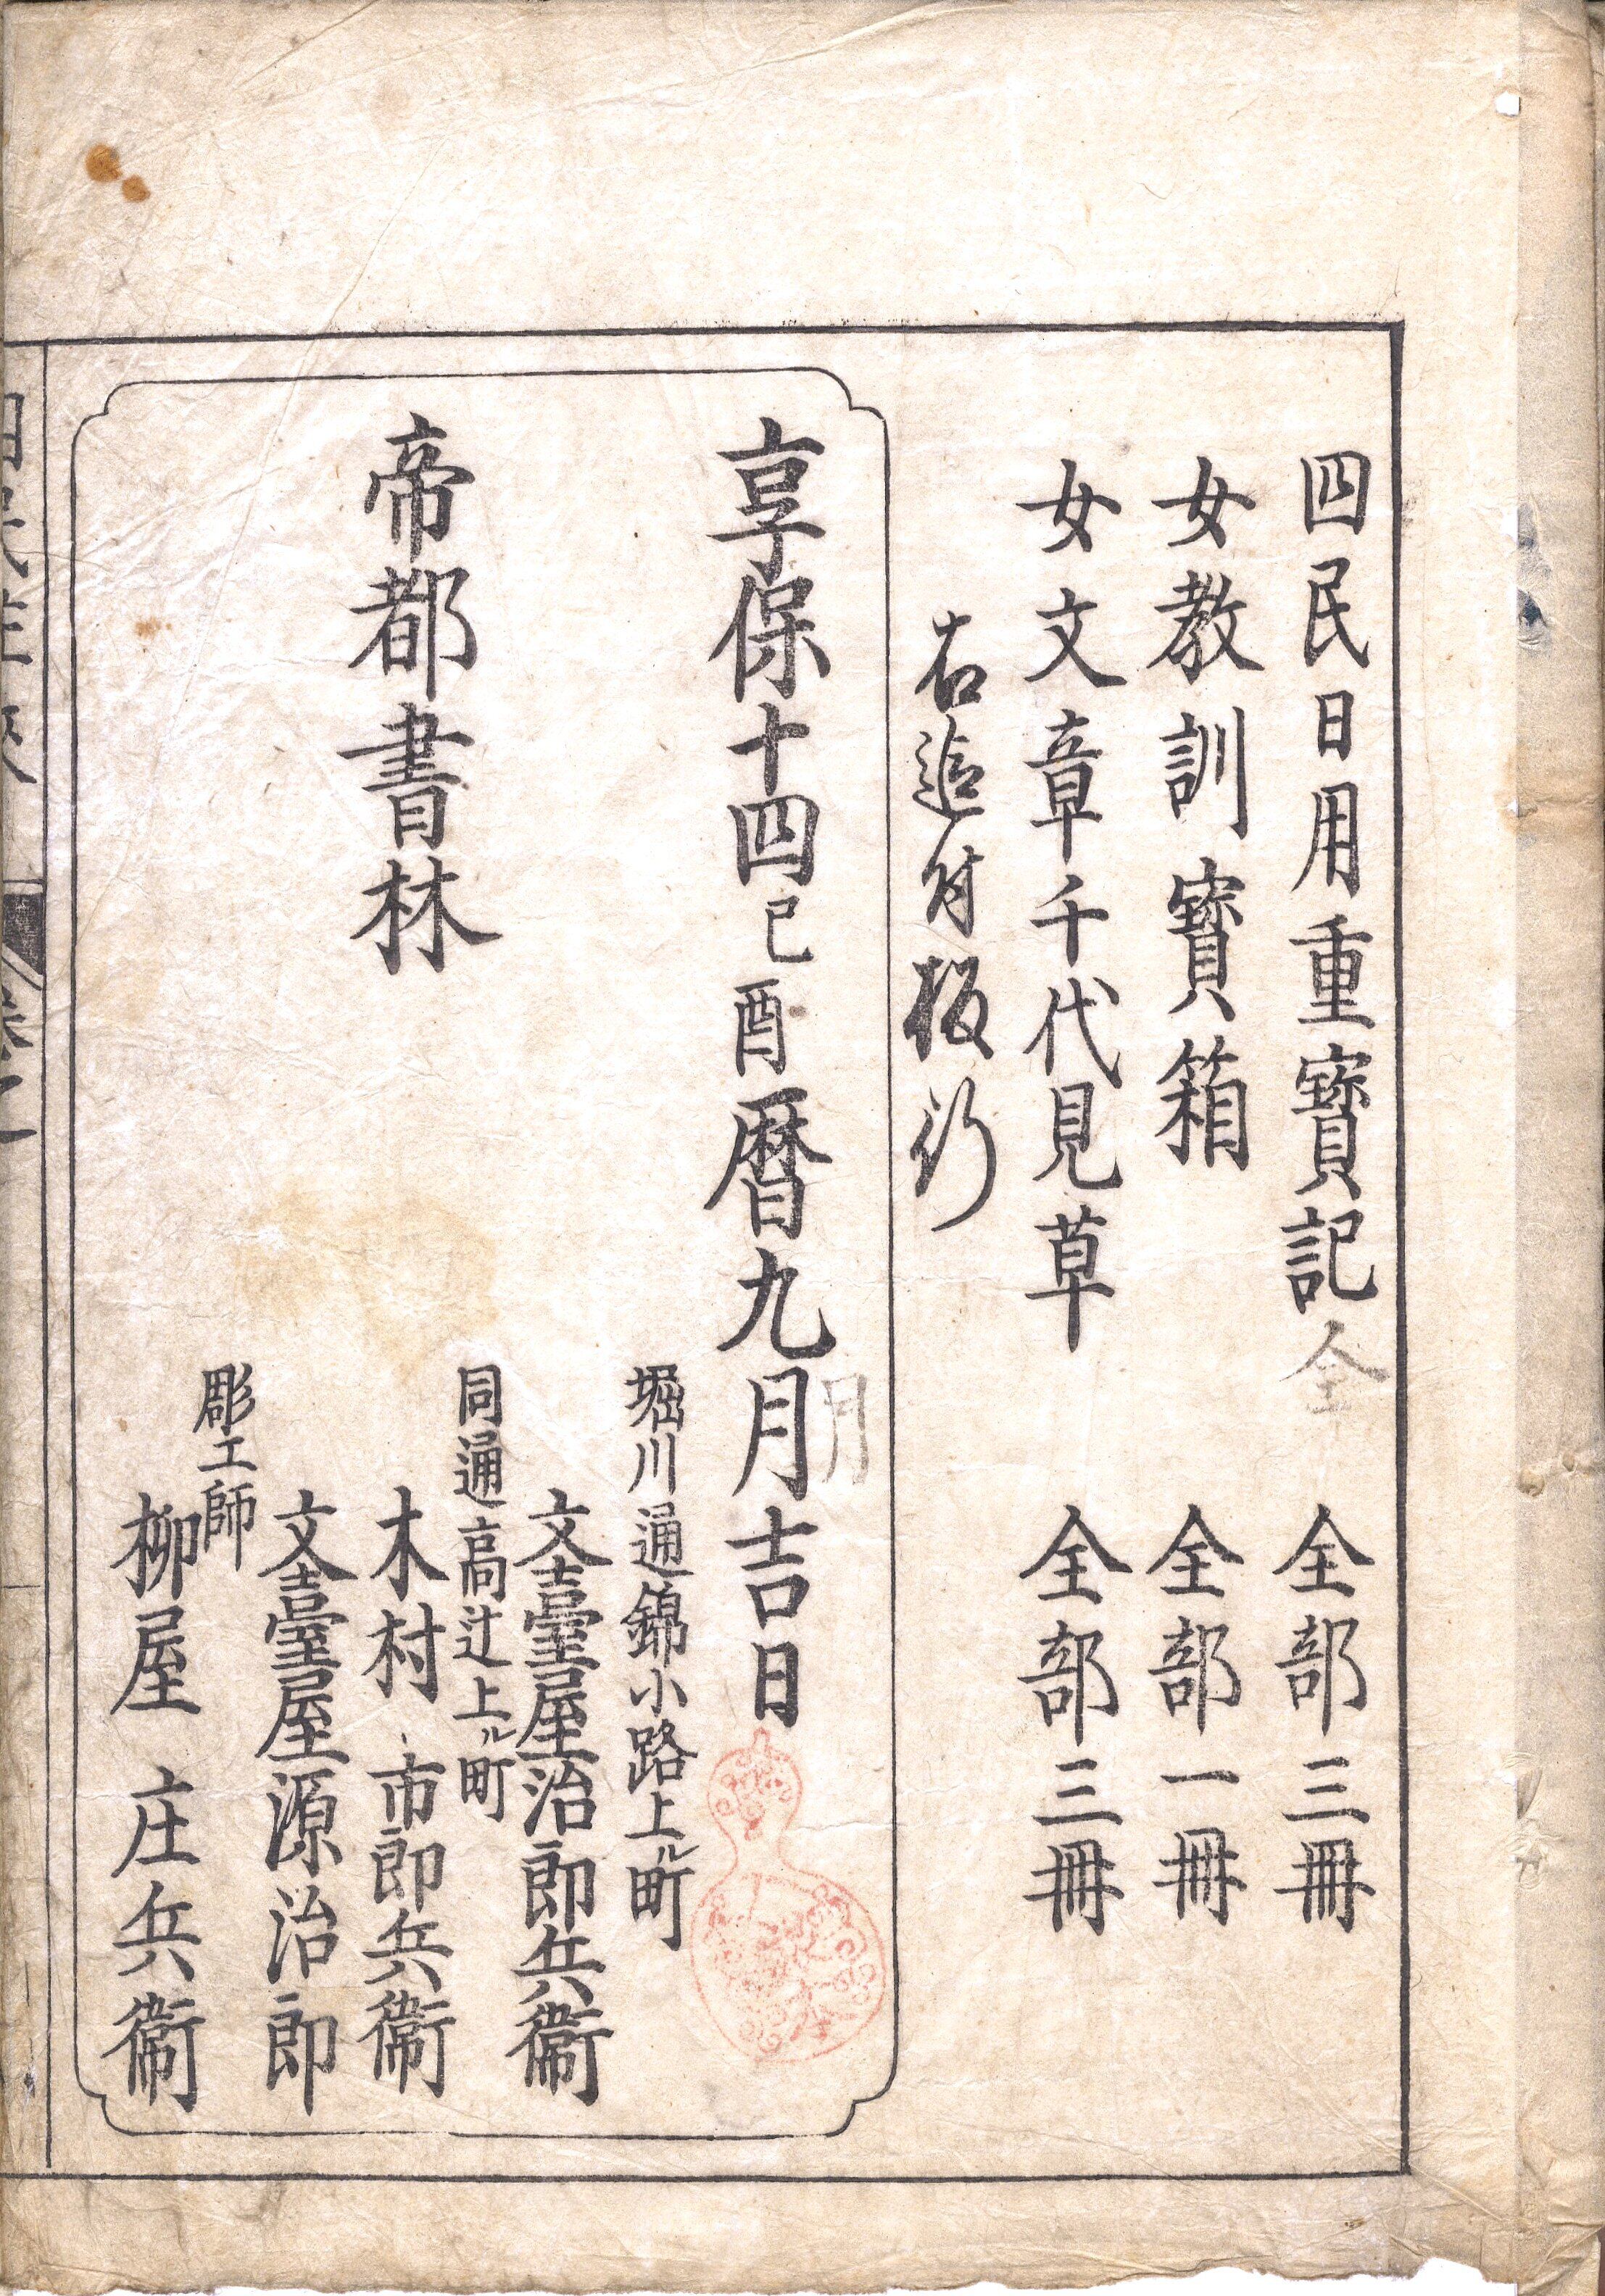 四民日用重寳記全 全部三冊
女教訓寳箱 全部一冊
女文章千代見草 全部三冊
右追付板行
享保十四己酉暦九月吉日
月
帝都書林
堀川通錦小路上ル町
文臺屋治郎兵衞
同通高辻上ル町
木村市郎兵衞
文臺屋源治郎
彫工師
柳屋庄兵衞